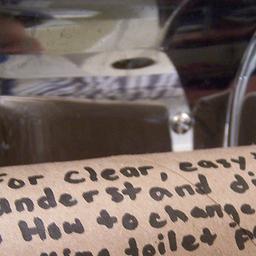 For clear, easy
understand di
How to change
toilet